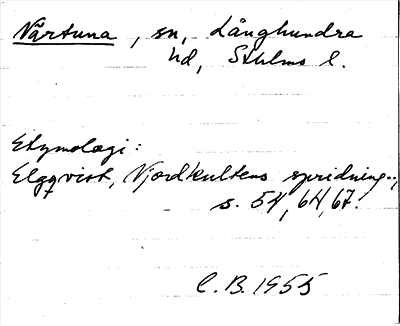 Närtuna, sn, Långhundra
hd, Sthlms l.
Etymologi:
Elgqvist, Njordkultens spridning..,
s. 54, 64, 67.
C.B. 1955